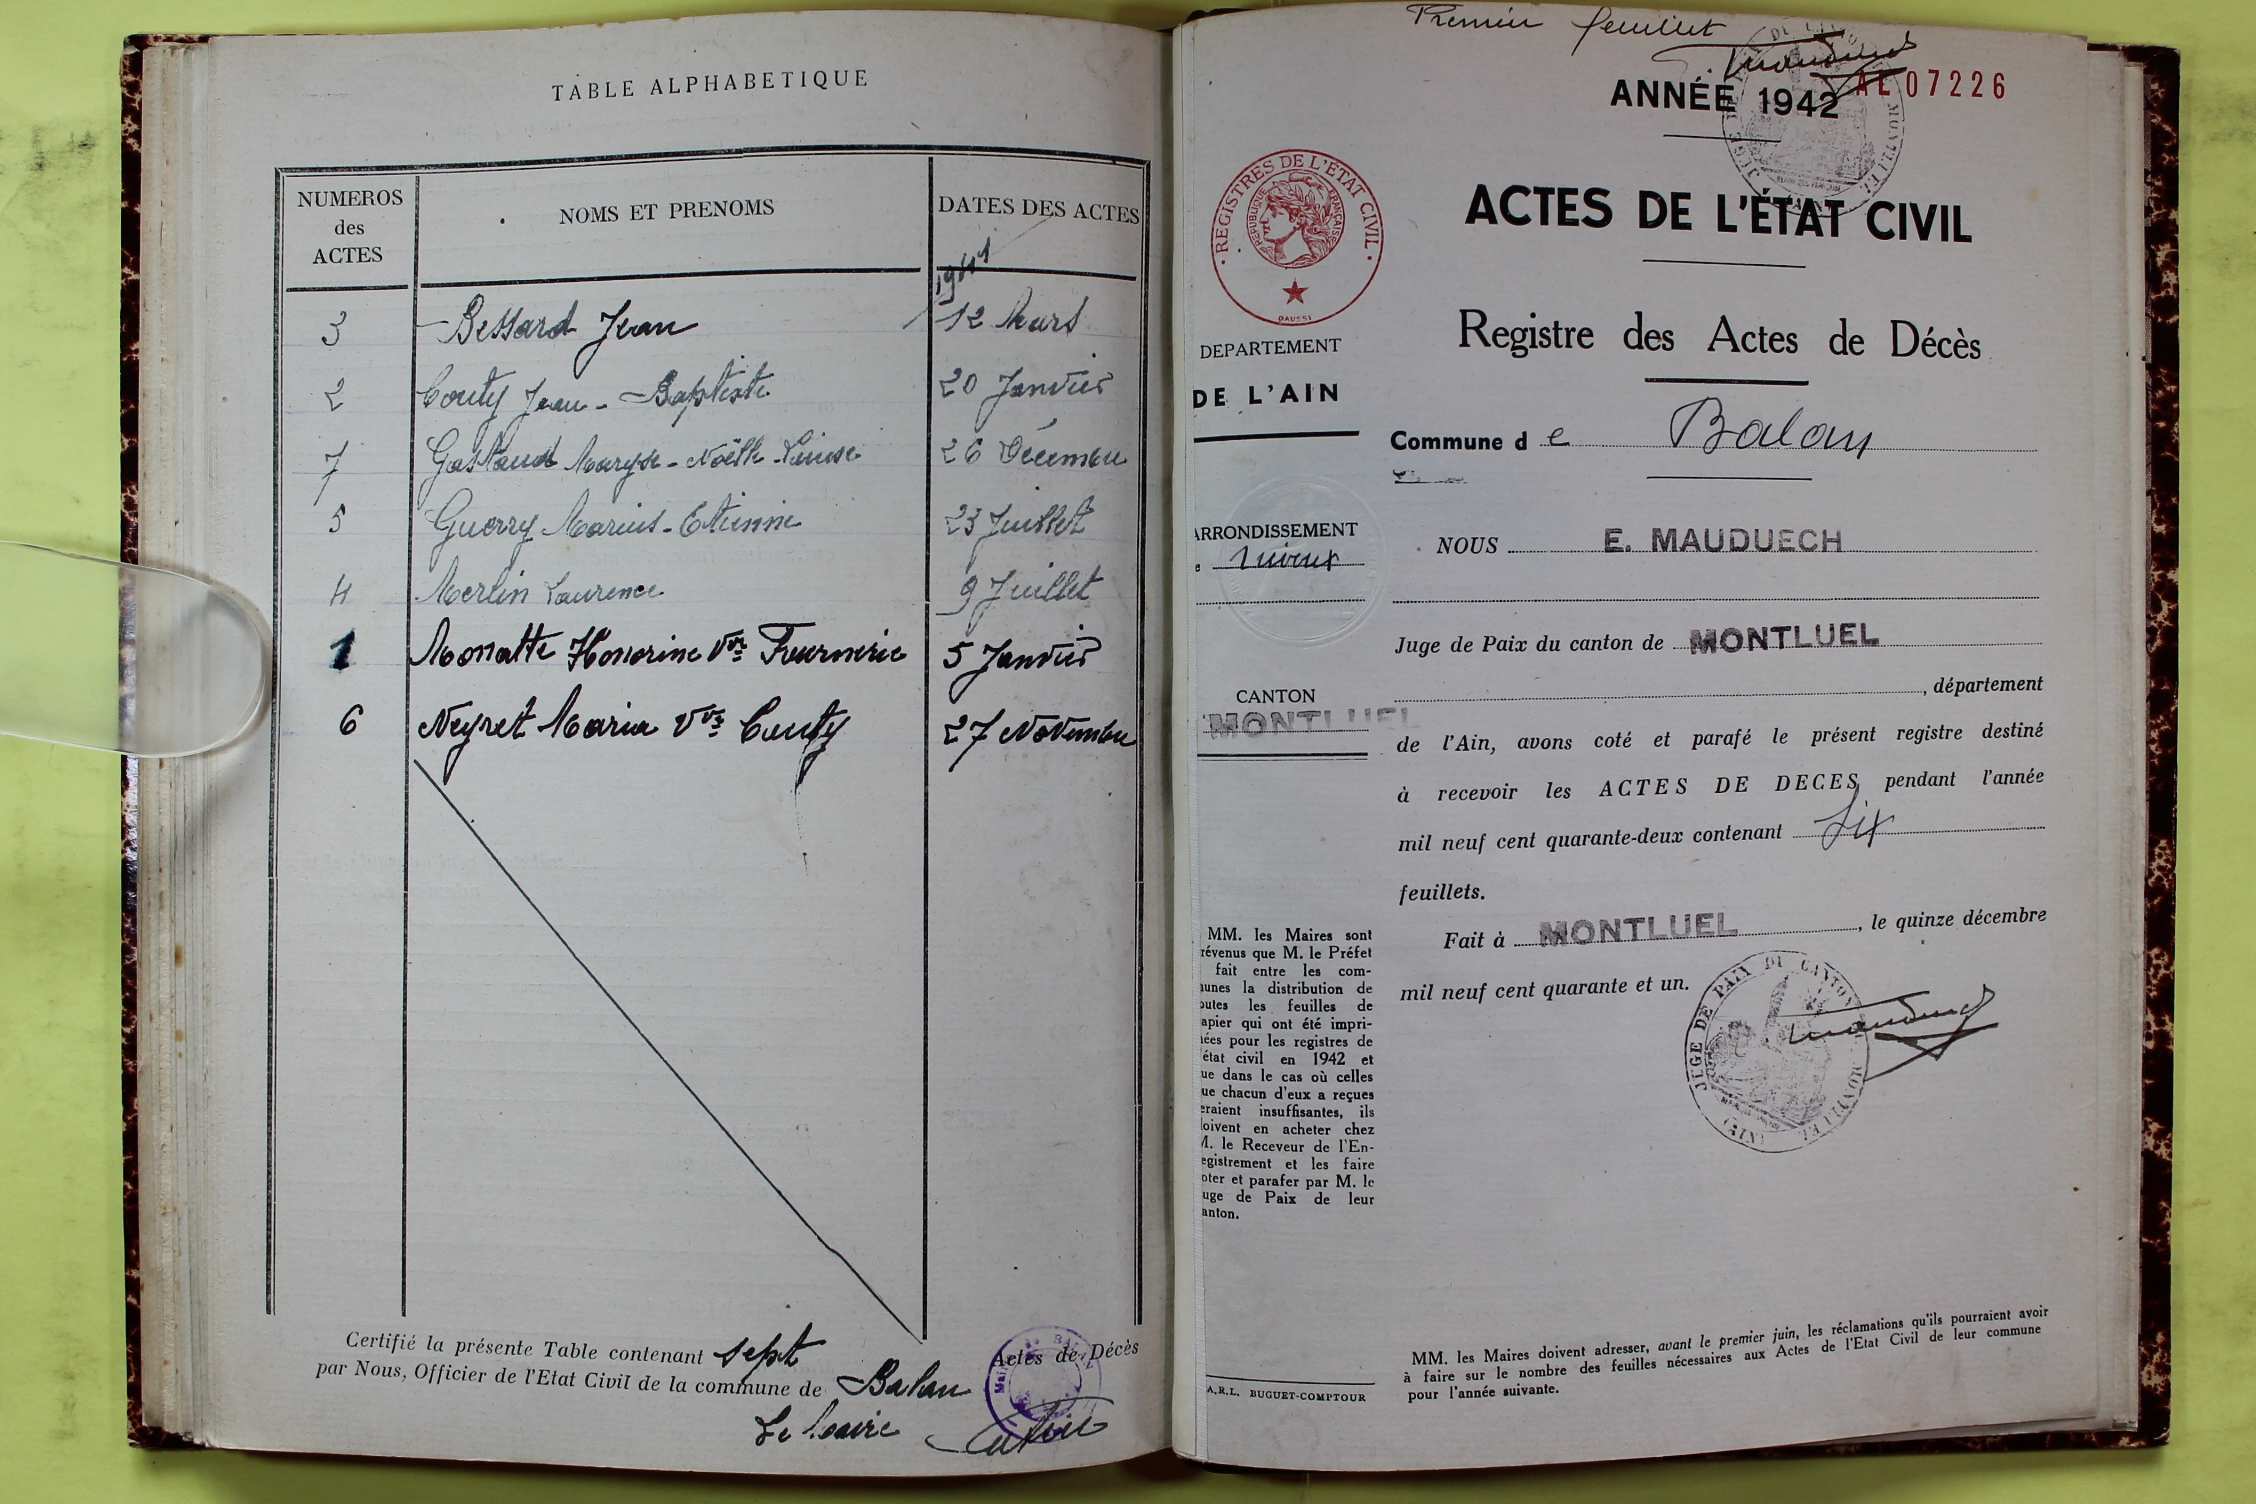 TABLE ALPHABETIQUE
NUMEROS des ACTES
NOMS ET PRENOMS
DATES DES ACTES
1941
3 Bessard Jean 12 Mars
2 Couty Jean-Baptiste 20 Janvier
7 Gastaud Maryse-Noëlle-Louise 26 Décembre
5 Guerry Marius-Etienne 23 Juillet
4 Merlin Laurence 9 Juillet
1 Monatte Honorine Vve Fournerie 5 Janvier
6 Neyret Maria Vve Couty 27 Novembre
Certifié la présente Table contenant sept Actes de Décès
par Nous, Officier de l'Etat Civil de la commune de Balan
Le Maire
Premier feuillet
AL 07226
ANNÉE 1942
ACTES DE L'ÉTAT CIVIL
Registre des Actes de Décès
Commune de Balan
NOUS E. MAUDUECH
Juge de Paix du canton de MONTLUEL
, département
de l'Ain, avons coté et parafé le présent registre destiné
à recevoir les ACTES DE DECES pendant l'année
mil neuf cent quarante-deux contenant six
feuillets.
Fait à MONTLUEL, le quinze décembre
mil neuf cent quarante et un.
JUGE DE PAIX DU CANTON
MONTLUEL
(AIN)
REGISTRES DE L'ÉTAT CIVIL
REPUBLIQUE FRANÇAISE
DAUSSI
DEPARTEMENT
DE L'AIN
ARRONDISSEMENT
CANTON
MONTLUEL
MM. les Maires sont
révenus que M. le Préfet
fait entre les com-
unes la distribution de
outes les feuilles de
apier qui ont été impri-
ées pour les registres de
état civil en 1942 et
ue dans le cas où celles
ue chacun d'eux a reçues
eraient insuffisantes, ils
oivent en acheter chez
M. le Receveur de l'En-
egistrement et les faire
oter et parafer par M. le
uge de Paix de leur
anton.
A.R.L. BUGUET-COMPTOUR
MM. les Maires doivent adresser, avant le premier juin, les réclamations qu'ils pourraient avoir
à faire sur le nombre des feuilles nécessaires aux Actes de l'Etat Civil de leur commune
pour l'année suivante.